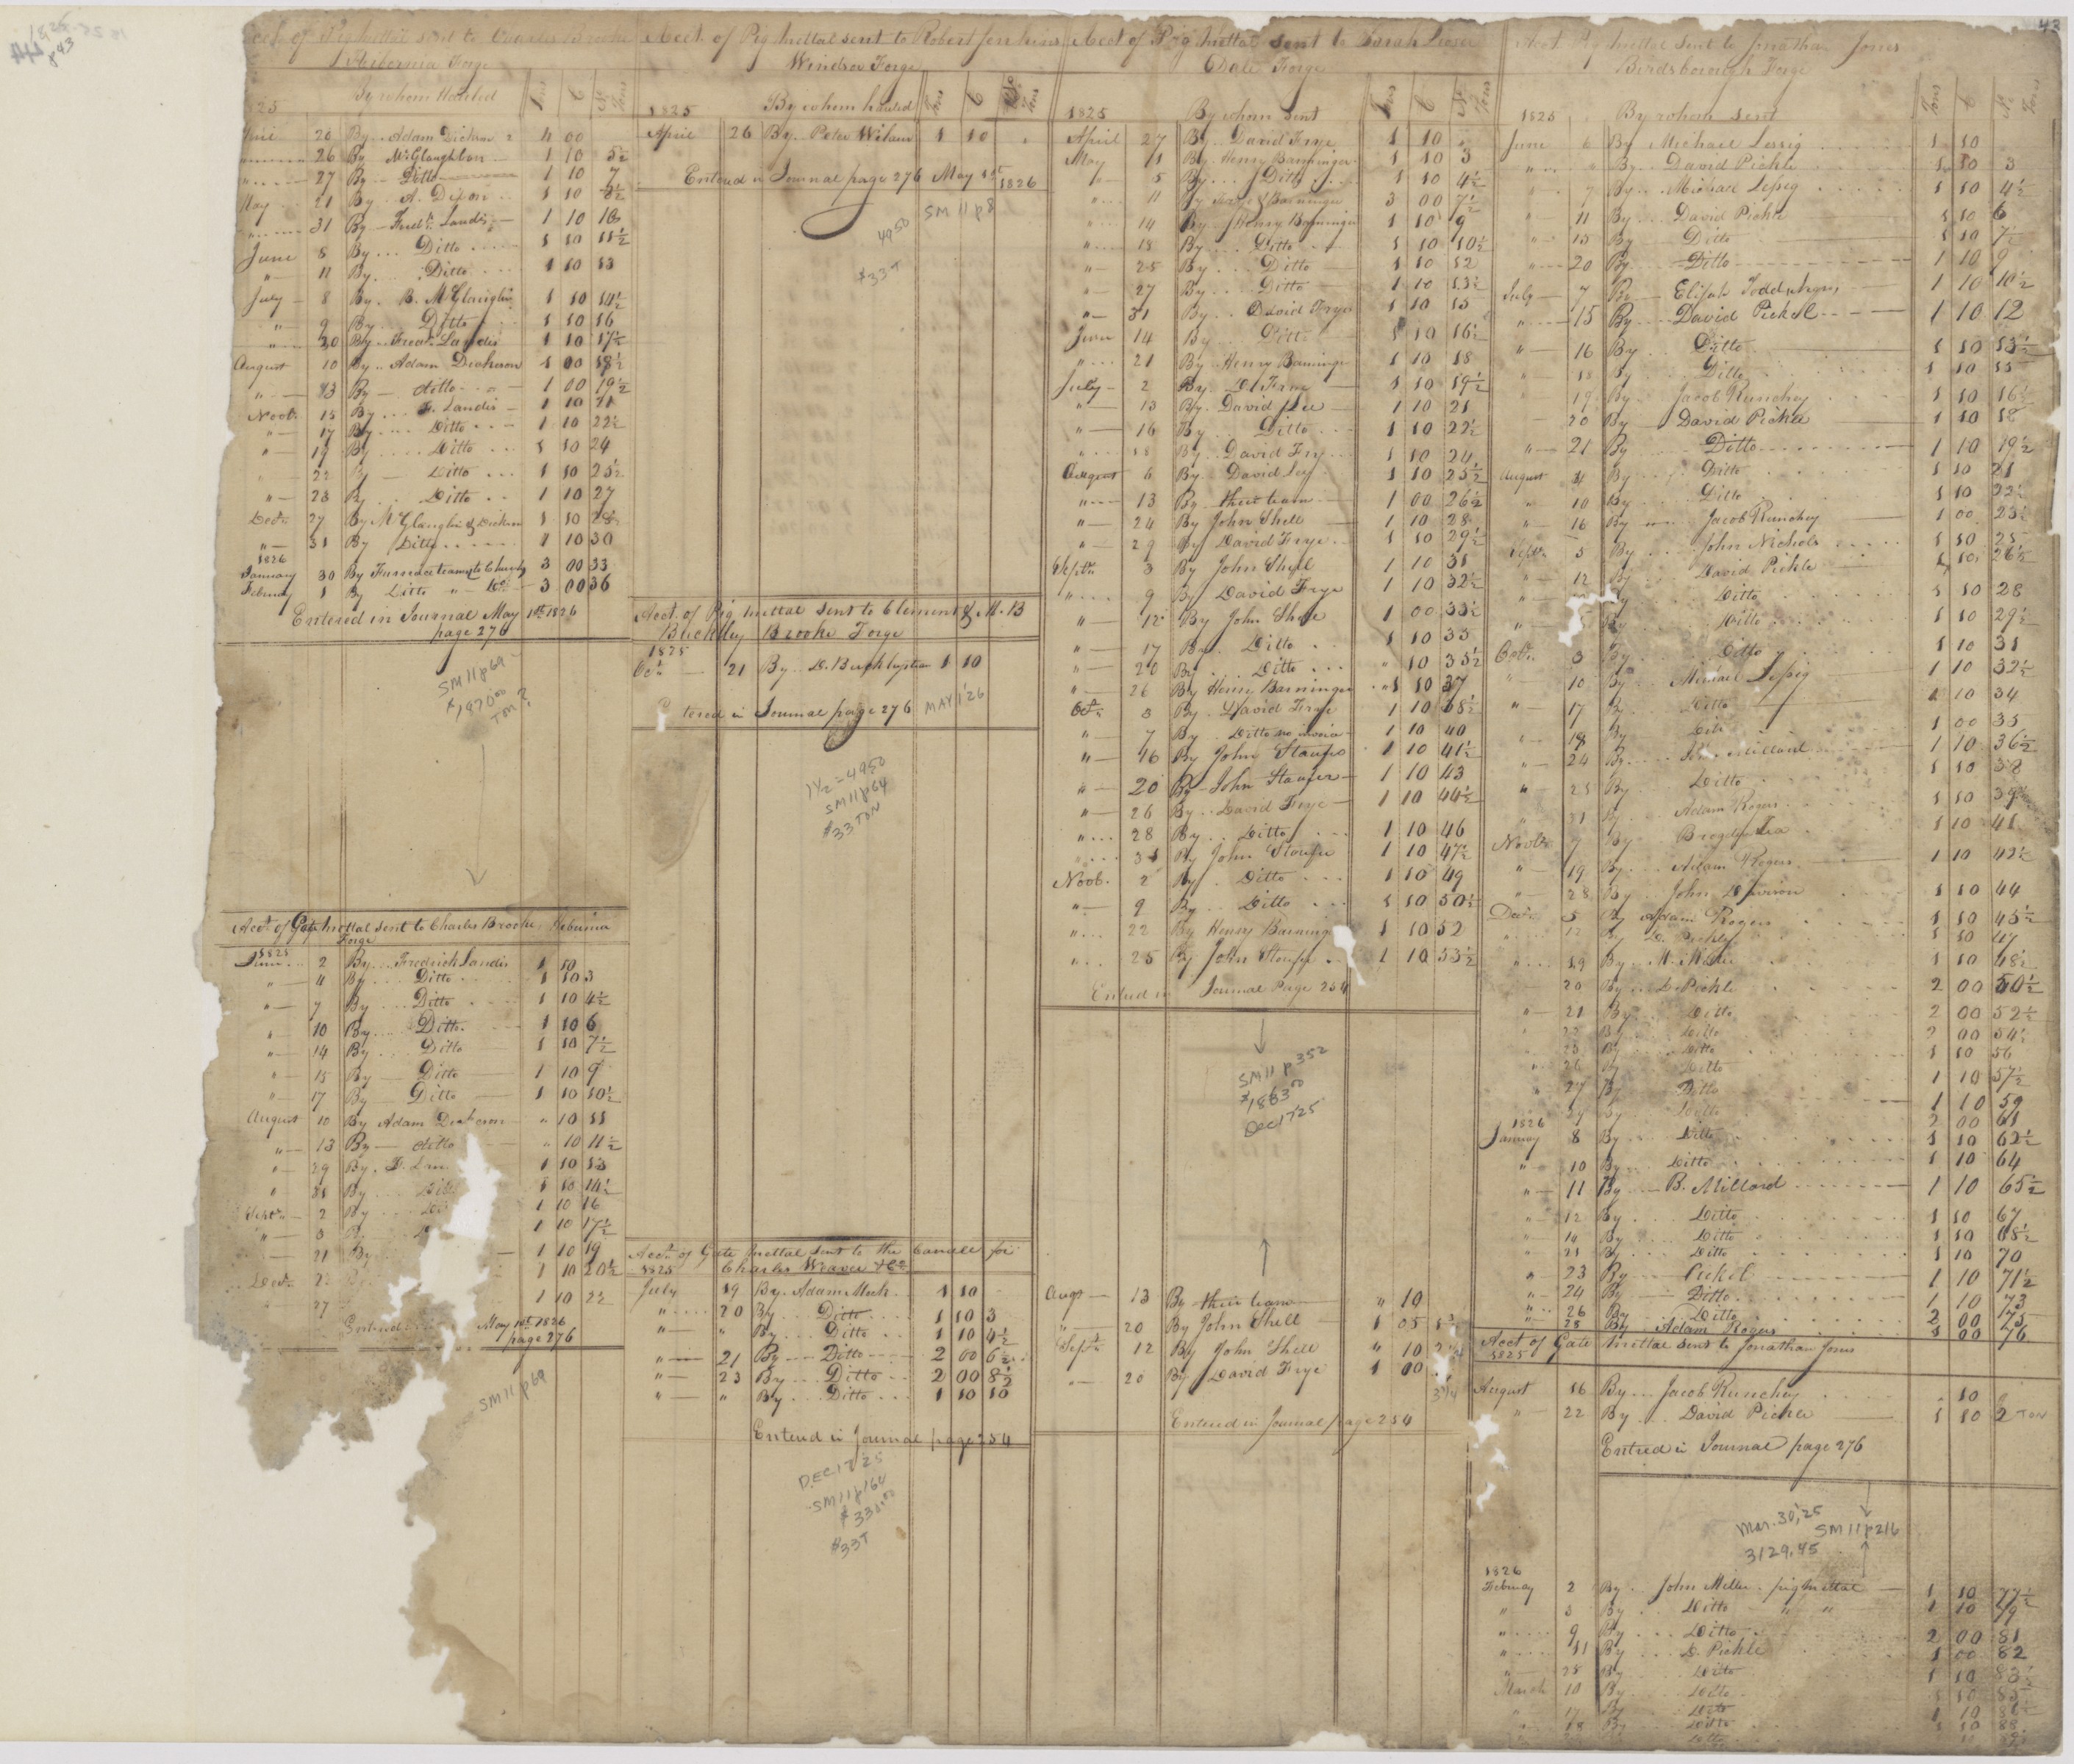 1825-26
p43
43
Acct. of Pig Mettal sent to Charles Brooke
Hibernia Forge
By whom Hauled Tons C No Tons
1825
26 By Adam Dickin 4 00
" 26 By McGlaughlin 1 10 5½
" 27 By Ditto 1 10 7
May 21 By A. Dixon 1 10 8½
" 31 By Fredk. Landis 1 10 10
June 8 By Ditto 1 10 11½
" 11 By Ditto 1 10 13
July 8 By B. McGlaughlin 1 10 14½
" 9 By Ditto 1 10 16
" 30 By Fredk. Landis 1 10 17½
August 10 By Adam Dickerson 1 00 18½
" 13 By ditto 1 00 19½
Novbr. 15 By F. Landis 1 10 21
" 17 By Ditto 1 10 22½
" 19 By Ditto 1 10 24
" 22 By Ditto 1 10 25½
" 23 By Ditto 1 10 27
Decbr. 27 By McGlaughlin & Dickson 1 10 28½
" 31 By Ditto 1 10 30
1826
January 30 By Furnace teams to Church 3 00 33
Februay 1 By Ditto " Do 3 00 36
Entered in Journal May 1st 1826
page 276
SM 11 p69
$1870.00
TON?
Acct. of Gate Mettal sent to Charles Brooke, Hibernia
Forge
1825
June 2 By Fredrick Landis 1 10
" 4 By Ditto 1 10 3
" 7 By Ditto 1 10 4½
" 10 By Ditto 1 10 6
" 14 By Ditto 1 10 7½
" 15 By Ditto 1 10 9
" 17 By Ditto 1 10 10½
August 10 By Adam Dickerson " 10 11
" 13 By ditto " 10 11½
" 29 By F. Lan 1 10 13
" 31 By Dit 1 10 14½
Septr. 2 By Di 1 10 16
" 3 By 1 10 17½
" 21 By 1 10 19
Decbr. 22 1 10 20½
" 27 1 10 22
Entered May 1st 1826
page 276
SM 11 p69
Acct. of Pig Mettal sent to Robert Jenkins
Windsor Forge
1825 By whom hauled Tons C No Tons
April 26 By Peter Wilson 1 10
Entered in Journal page 276 May 1st 1826
SM 11 p8
4950
$33T
Acct. of Pig Mettal sent to Clement & M. B
Buckley Brooke Forge
1825
Oct. 21 By D. Buckleystien 1 10
tered in Journal page 276 MAY 1 '26
1½ = 4950
SM 11 p64
$33 TON
Acct. of Gate Mettal sent to the Canall for
1825 Charles Weaver & Co
July 19 By Adam Meck 1 10
" 20 By Ditto 1 10 3
" " By Ditto 1 10 4½
" 21 By Ditto 2 00 6½
" 23 By Ditto 2 00 8½
" " By Ditto 1 10 10
Entered in Journal page 254
DEC 17 '25
SM 11 p164
$330.00
$33T
Acct of Pig Mettal sent to Sarah Leoser
Dale Forge
1825 By whom sent Tons C No Tons
April 27 By David Frye 1 10
May 1 By Henry Banninger 1 10 3
" 5 By Ditto 1 10 4½
" 11 By Frye & Banninger 3 00 7½
" 14 By Henry Banninger 1 10 9
" 18 By Ditto 1 10 10½
" 25 By Ditto 1 10 12
" 27 By Ditto 1 10 13½
" 31 By David Frye 1 10 15
June 14 By Ditto 1 10 16½
" 21 By Henry Banninger 1 10 18
July 2 By D. Frye 1 10 19½
" 13 By David Lee 1 10 21
" 16 By Ditto 1 10 22½
" 18 By David Frye 1 10 24
August 6 By David Ley 1 10 25½
" 13 By their team 1 00 26½
" 24 By John Shell 1 10 28
" 29 By David Frye 1 10 29½
Septr. 3 By John Shell 1 10 31
" 9 By David Frye 1 10 32½
" 12 By John Shell 1 00 33½
" 17 By Ditto 1 10 35
" 20 By Ditto " 10 35½
" 26 By Henry Banninger 1 10 37
Octr. 3 By David Frye 1 10 38½
" 7 By Ditto no invoice 1 10 40
" 16 By John Staufer 1 10 41½
" 20 By John Staufer 1 10 43
" 26 By David Frye 1 10 44½
" 28 By Ditto 1 10 46
" 31 By John Stoufer 1 10 47½
Novb. 2 By Ditto 1 10 49
" 9 By Ditto 1 10 50½
" 22 By Henry Banning 1 10 52
" 25 By John Stoufer 1 10 53½
Entred in Journal Page 254
SM 11 p352
$1883.00
Dec 17 '25
Augt 13 By their team " 10
" 20 By John Shell 1 05
Septr. 12 By John Shell " 10
" 20 By David Frye 1 00
3¼
Entered in Journal page 254
Acct. Pig Mettal Sent to Jonathan Jones
Birdsborough Forge
1825 By whom sent Tons C No Tons
June 6 By Michael Lessig 1 10
" " By David Pickle 1 10 3
" 7 By Michael Lessig 1 10 4½
" 11 By David Pickle 1 10 6
" 15 By Ditto 1 10 7½
" 20 By Ditto 1 10 9
July 7 By Elijah Todd 1 10 10½
" 15 By David Pickel 1 10 12
" 16 By Ditto 1 10 13½
" 18 By Ditto 1 10 15
" 19 By Jacob Runchey 1 10 16½
20 By David Pickle 1 10 18
" 21 By Ditto 1 10 19½
August 4 By Ditto 1 10 21
" 10 By Ditto 1 10 22½
" 16 By Jacob Runchey 1 00 23½
Septr. 5 By John Nichols 1 10 25
" 12 By David Pickle 1 10 26½
By Ditto 1 10 28
" By Ditto 1 10 29½
Octbr. 3 By Ditto 1 10 31
" 10 By Michael Lessig 1 10 32½
" 17 By Ditto 1 10 34
" 18 By Ditto 1 00 35
" 24 By Millard 1 10 36½
" 25 By Ditto 1 10 38
" 31 By Adam Rogers 1 10 39½
Novbr. 7 By 1 10 41
" 19 By Adam Rogers 1 10 42½
" 28 By John Davison 1 10 44
Decbr. 5 By Adam Rogers 1 10 45½
" 12 By D. Pickle 1 10 47
" 19 By 1 10 48½
" 20 By D. Pickle 2 00 50½
" 21 By Ditto 2 00 52½
" 22 By Ditto 2 00 54½
" 23 By Ditto 1 10 56
" 26 By Ditto 1 10 57½
" 27 By Ditto 1 10 59
By Ditto 2 00 61
1826
Januay 8 By Ditto 1 10 62½
" 10 By Ditto 1 10 64
" 11 By B. Millard 1 10 65½
" 12 By Ditto 1 10 67
" 14 By Ditto 1 10 68½
" 21 By Ditto 1 10 70
" 23 By Pickel 1 10 71½
" 24 By Ditto 1 10 73
" 26 By Ditto 2 00 75
" 28 By Adam Rogers 1 00 76
Acct of Gate Mettal sent to Jonathan Jones
1825
August 16 By Jacob Runchey 10
" 22 By David Pickle 1 10 2 TON
Entred in Journal page 276
Mar. 30, '25 SM 11 p216
3129.45
1826
Februay 2 By John Miller pig Mettal 1 10 77½
" 3 By Ditto " " 1 10 79
" 9 By Ditto 2 00 81
" 11 By D. Pickle 1 00 82
" 28 By Ditto 1 10 83½
March 10 By Ditto 1 10 85
" 17 By Ditto 1 10 86½
" 18 By Ditto 1 10 88
Ditto